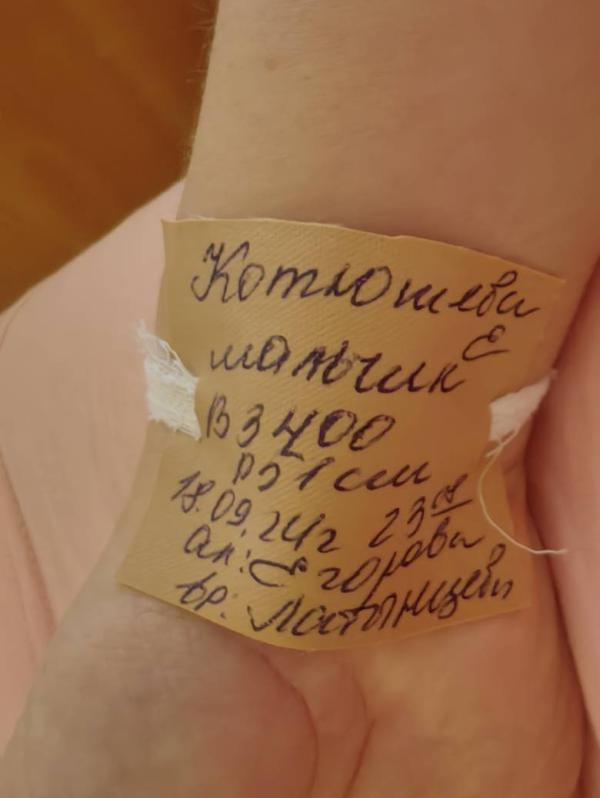 Котлюшева Е
мальчик
В 3400
Р 51 см
18.09.24г 23 08
ак: Егорова
вр: